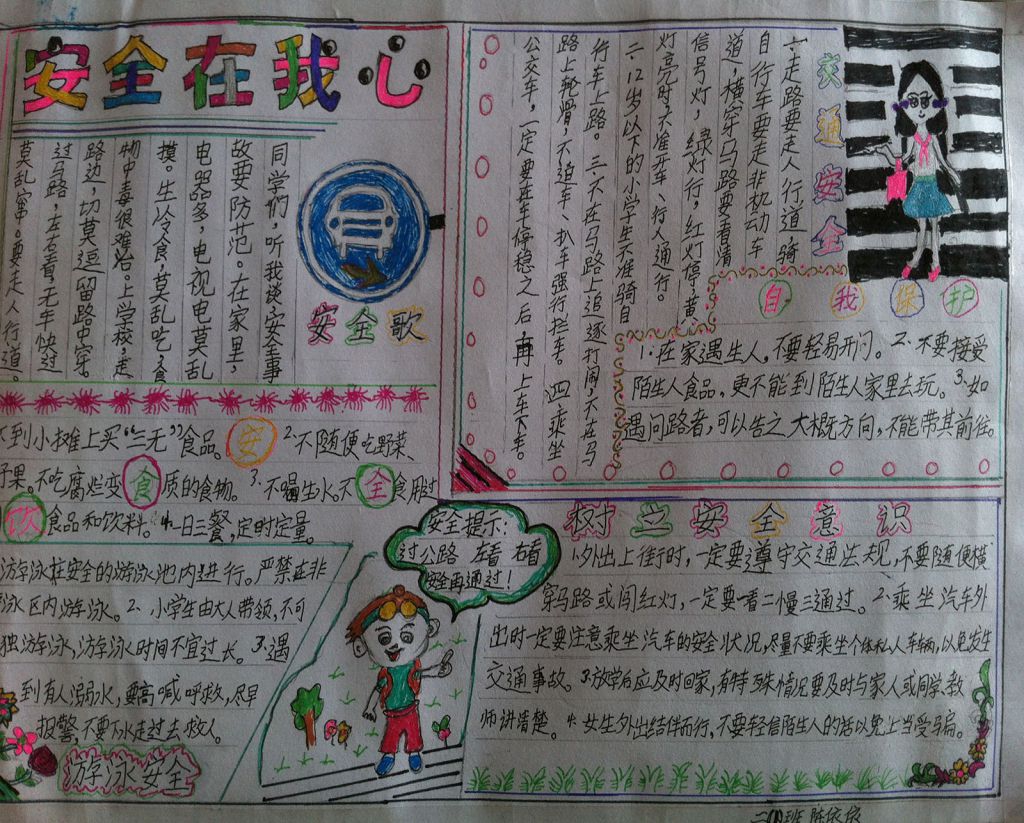 安全在我心
同学们，听我谈，安全事
故要防范。在家里，
电器多，电视电莫乱
摸。生冷食，莫乱吃，食
物中毒很难治。上学校，走
路边，切莫逗留路中穿。
过马路，左右看，无车快过
莫乱窜。要走人行道。
安全歌
交通安全
一、走路要走人行道，骑
自行车要走非机动车
道，横穿马路要看清
信号灯，绿灯行，红灯停，黄
灯亮时，不准开车、行人通行。
二、12岁以下的小学生不准骑自
行车上路。三、不在马路上追逐打闹，不在马
路上轮滑，不追车、扒车强行拦车。四、乘坐
公交车，一定要在车停稳之后，再上车下车。
自我保护
1、在家遇生人，不要轻易开门。2、不要接受
陌生人食品，更不能到陌生人家里去玩。3、如
遇问路者，可以告之大概方向，不能带其前往。
到小摊上买“三无”食品。 2、不随便吃野菜、
果。不吃腐烂变质的食物。3、不喝生水。不食用过
食品和饮料。4、一日三餐，定时定量。
饮食安全
游泳在安全的游泳池内进行。严禁在非
泳区内游泳。2、小学生由大人带领，不可
独游泳，游泳时间不宜过长。3、遇
到有人溺水，要高喊呼救，尽早
报警，不要下水走过去救人。
游泳安全
安全提示：
过公路 左看 右看
安全再通过！
树立安全意识
1、外出上街时，一定要遵守交通法规，不要随便横
穿马路或闯红灯，一定要一看二慢三通过。2、乘坐汽车外
出时一定要注意乘坐汽车的安全状况，尽量不要乘坐个体私人车辆，以免发生
交通事故。3、放学后应及时回家，有特殊情况要及时与家人或同学、教
师讲清楚。4、女生外出结伴而行，不要轻信陌生人的话以免上当受骗。